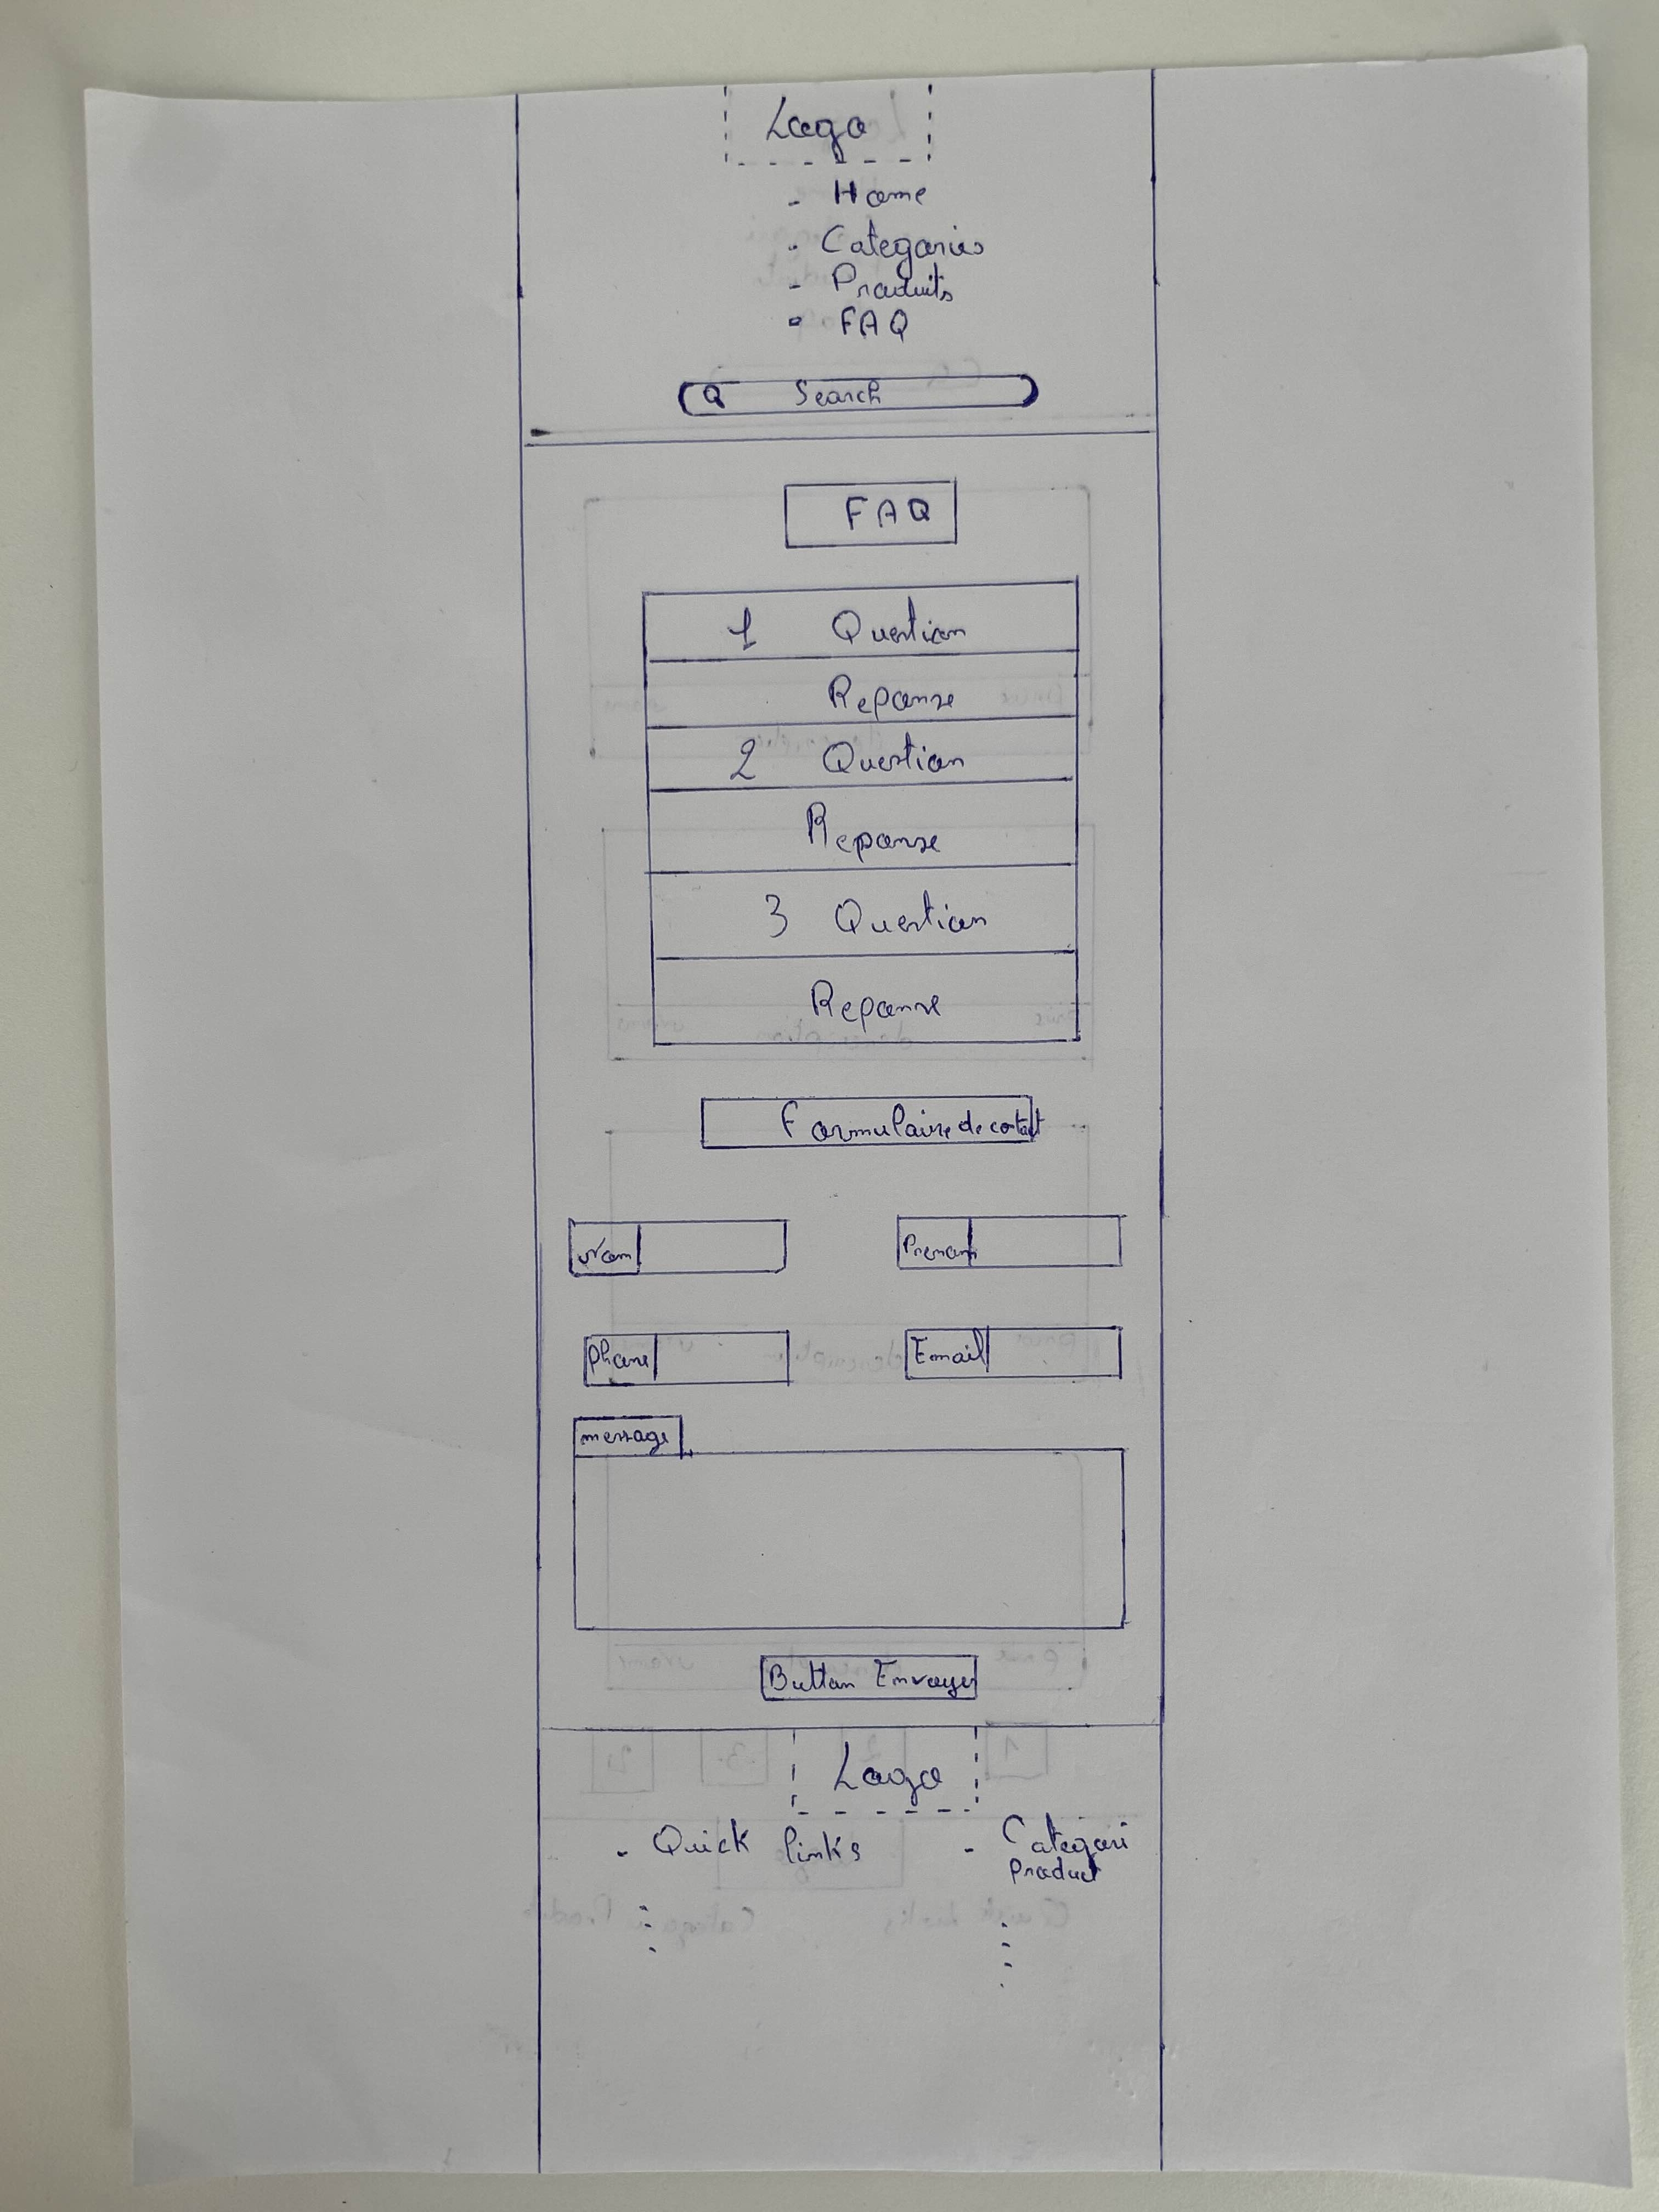 Logo
- Home
- Categories
- Produits
- FAQ
Search
FAQ
1 Question
Reponse
2 Question
Reponse
3 Question
Reponse
Formulaire de contact
Nom
Prenom
Phone
Email
message
Button Envoyer
Logo
- Quick links
- Categori
Product